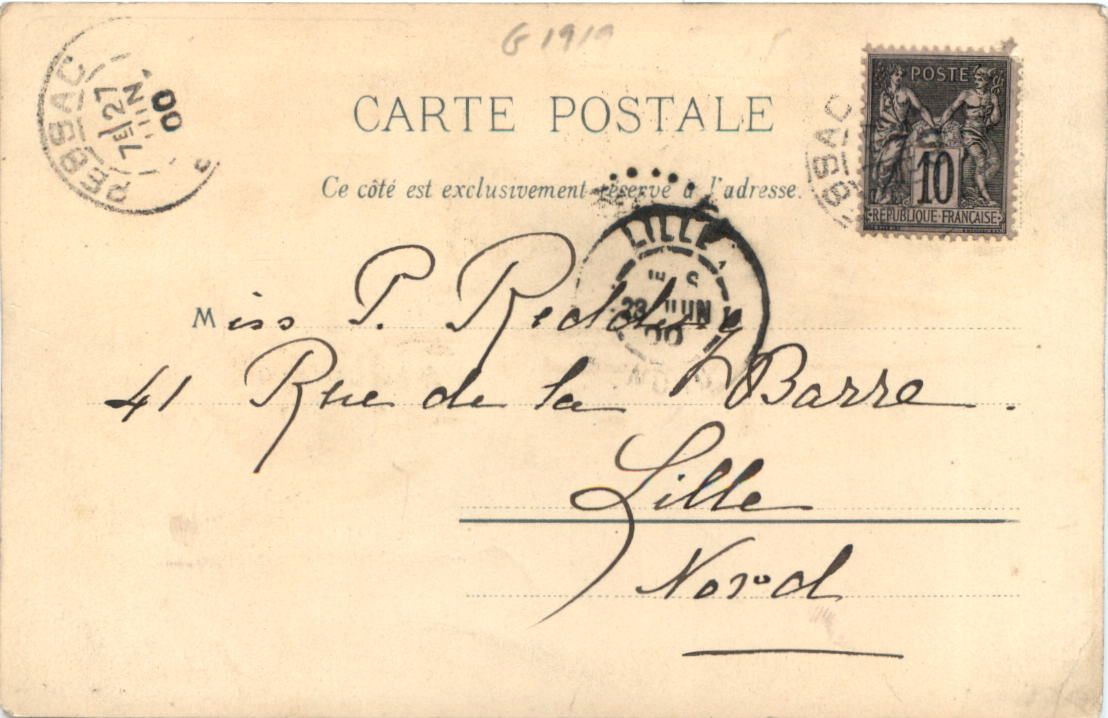 G 1919
CARTE POSTALE
Ce côté est exclusivement réservé à l'adresse.
PESSAC
7E 27
JUIN
00
POSTE
10
REPUBLIQUE FRANÇAISE
LILLE
28 JUIN
00
Miss P.
41 Rue de la Barre.
Lille
Nord